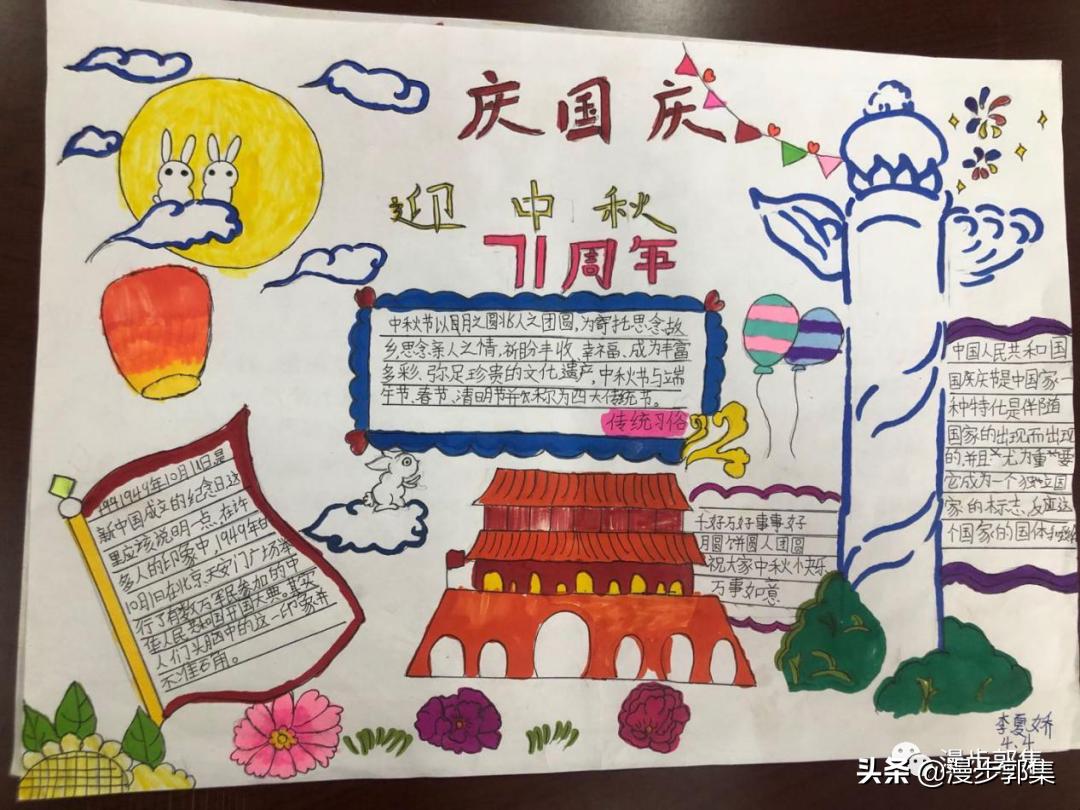 庆国庆
迎中秋
71周年
中秋节以月之圆兆人之团圆,为寄托思念故
乡思念亲人之情,祈盼丰收、幸福、成为丰富
多彩、弥足珍贵的文化遗产,中秋节与端
午节、春节、清明节并称为四大传统节。
传统习俗
1949年10月1日是
新中国成立的纪念日这
里应该说明一点,在许
多人的印象中,1949年的
10月1日在北京天安门广场举
行了有数万军民参加的中
华人民共和国开国大典。其实
人们头脑中的这一印象并
不准确。
千好万好事事好
月圆饼圆人团圆
祝大家中秋快乐
万事如意
中国人民共和国
国庆节是中国家一
种特化是伴随
国家的出现而出现
的,并且尤为重要
它成为一个独立国
家的标志,反应这
个国家的国体
李夏娇
4.4
漫步郭集
头条@漫步郭集